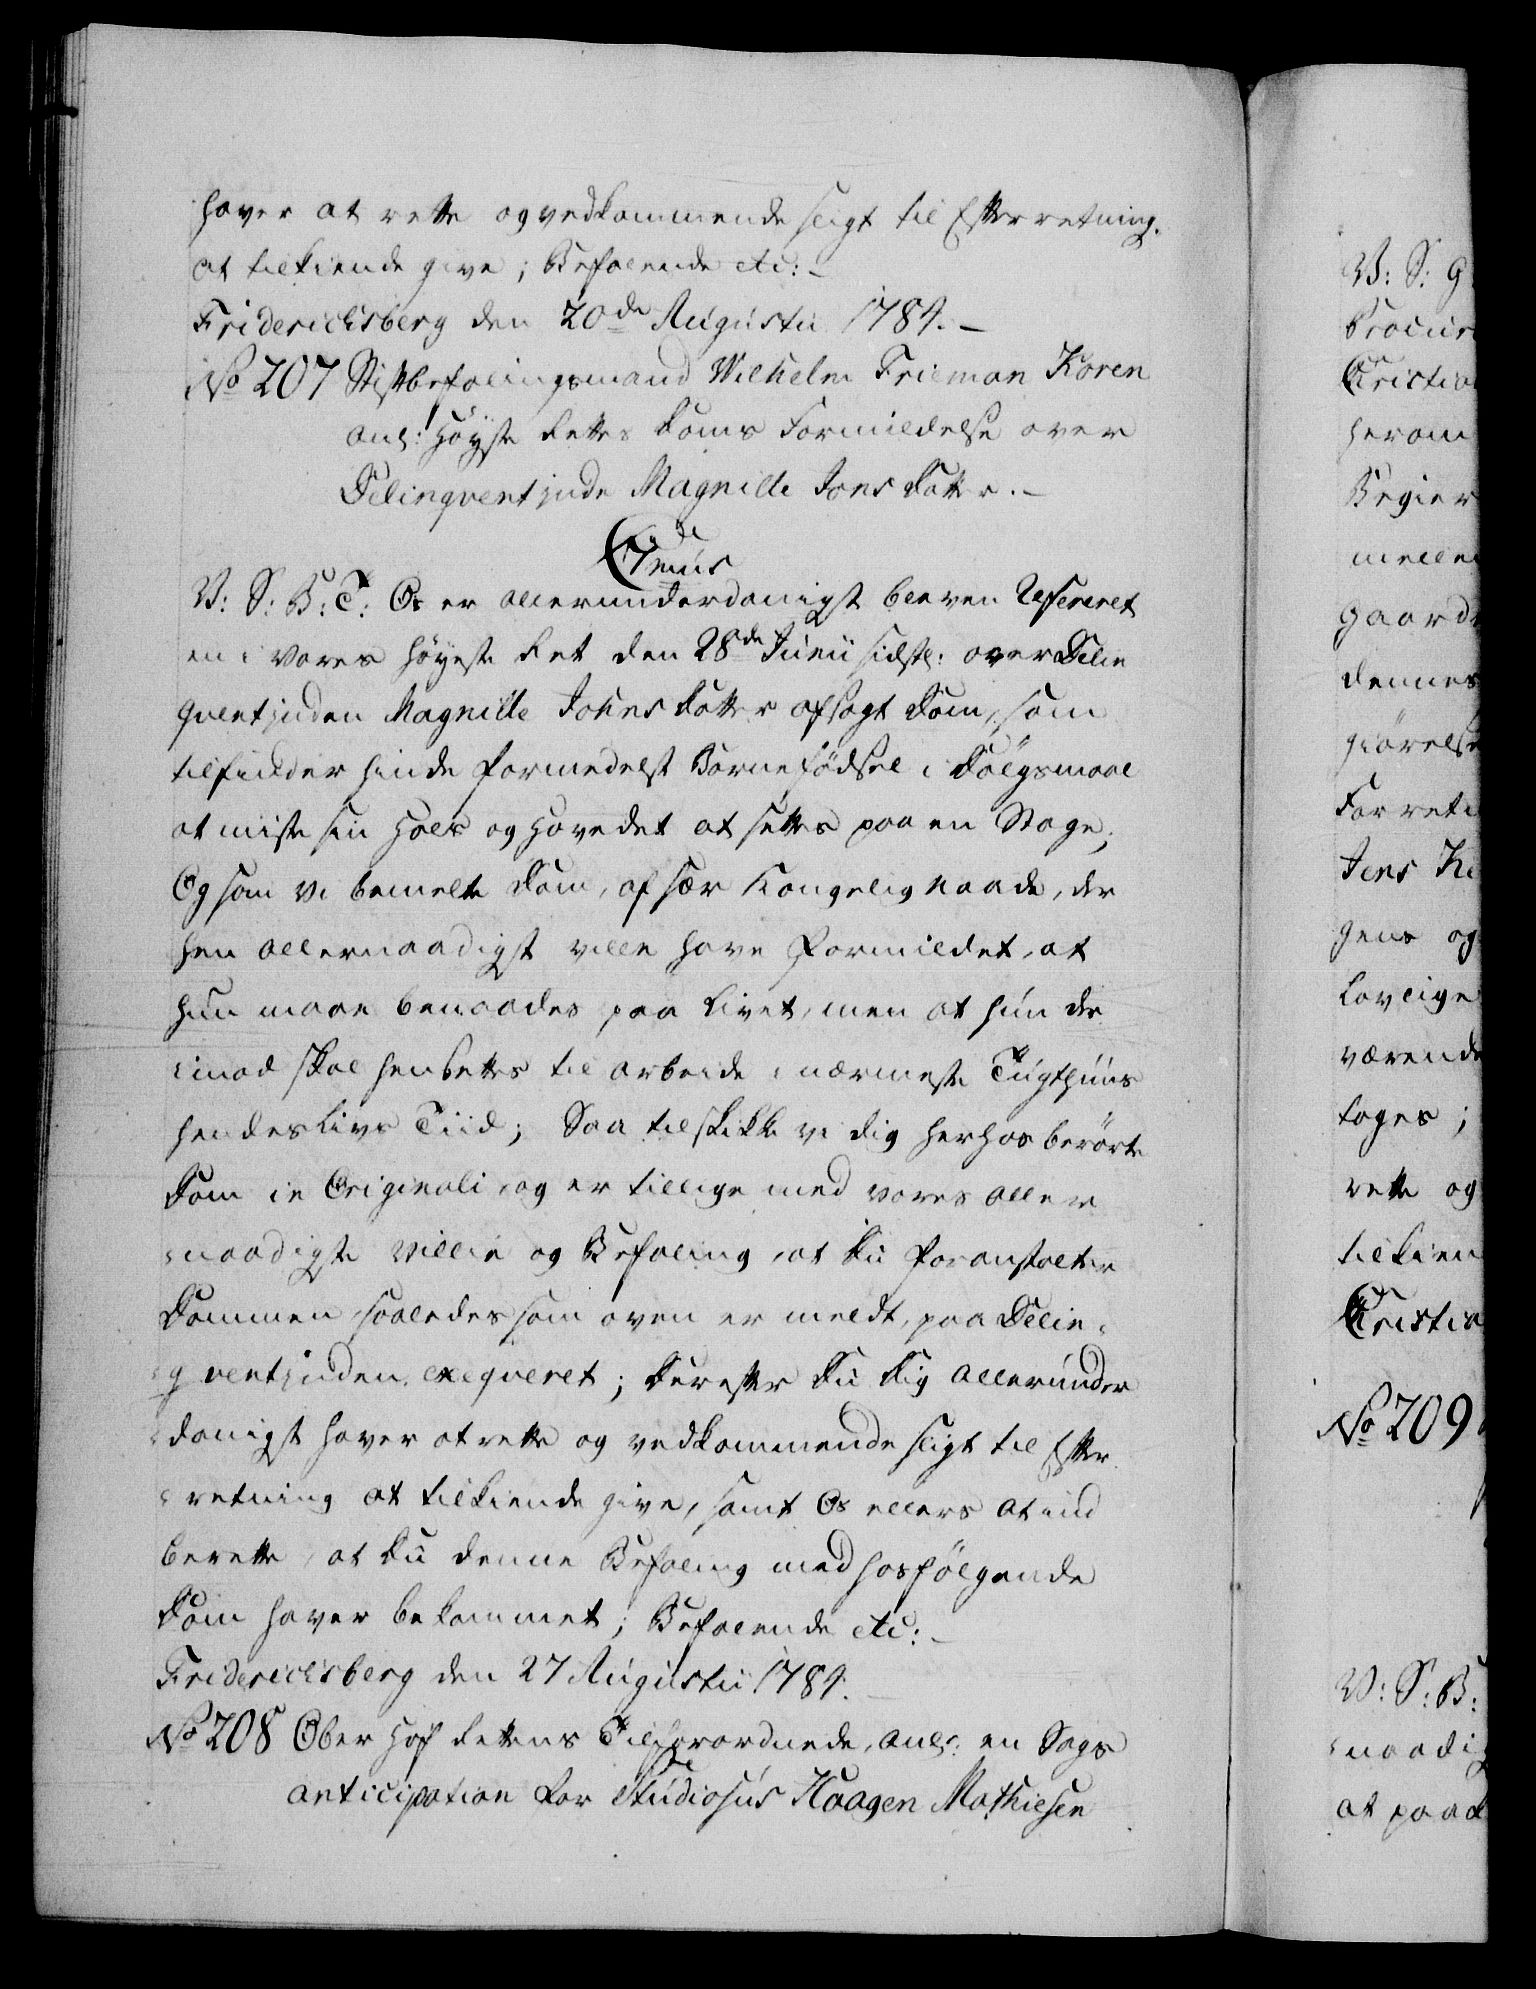 haver at rette og vedkommende sligt til Efterretning.
at tilkiende give; Befalende etc: –
Friderichsberg den 20de Augusti 1784. –
No 207 Stiftbefalingsmand Wilhelm Frieman Koren
anl: Höyste Rettes Doms Formildelse over
Delinqventinde Magnille Jons Datter. –
C 7mus
V: S: B: T: Os er allerunderdanigst bleven Refereret
en i Vores Höyeste Ret den 28de Junii sidstl: over Delin
qventinden Magnille Johns Datter afsagt Dom, som
tilfinder hinde formedelst Barnefödsel i Dölgsmaal
at miste sin Hals og Hovedet at settes paa en Stage;
Og som vi bemelte Dom, af sær Kongelig Naade, der
hen allernaadigst ville have Formildet, at
hun maae benaades paa Livet, men at hun der
imod skal hensettes til arbeide i nærmeste Tugthuus
hendes Livs Tiid; Saa tilskikke vi dig herhos berörte
Dom in Originali, og er tillige med vores aller
naadigste Villie og Befaling, at Du foranstalter
Dommen saaledes som oven er meldt, paa Delin=
qventinden, exeqveret; Derefter Du Dig allerunder
danigst haver at rette og vedkommende sligt til Efter
retning at tilkiende give, samt Os ellers at ind
berette, at Du denne Befaling med hosfölgende
Dom haver bekommet; Befalende etc: –
Friderichsberg den 27 Augustii 1784. –
No 208 Ober Hof Rettens Tilforordnede, anl: en Sags
anticipation for Studiosus Haagen Mathiesen
V: S: G
Procur
Cristia
herom
Begier
mellem
gaard
dennes
giörelse
Forret
Jens K
gens og
Lovlige
værende
tages;
rette og
tilkien
Cristia
No 209
V: S: B:
naadi
at paa